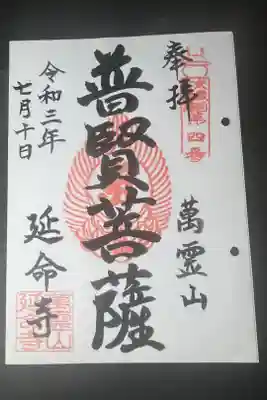 奉拝
萬霊山
普賢菩薩
令和三年
七月十日
延命寺